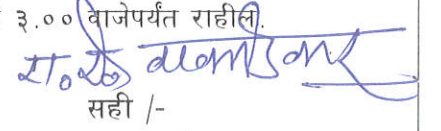 ३.०० वाजेपर्यंत राहील.
सही /-